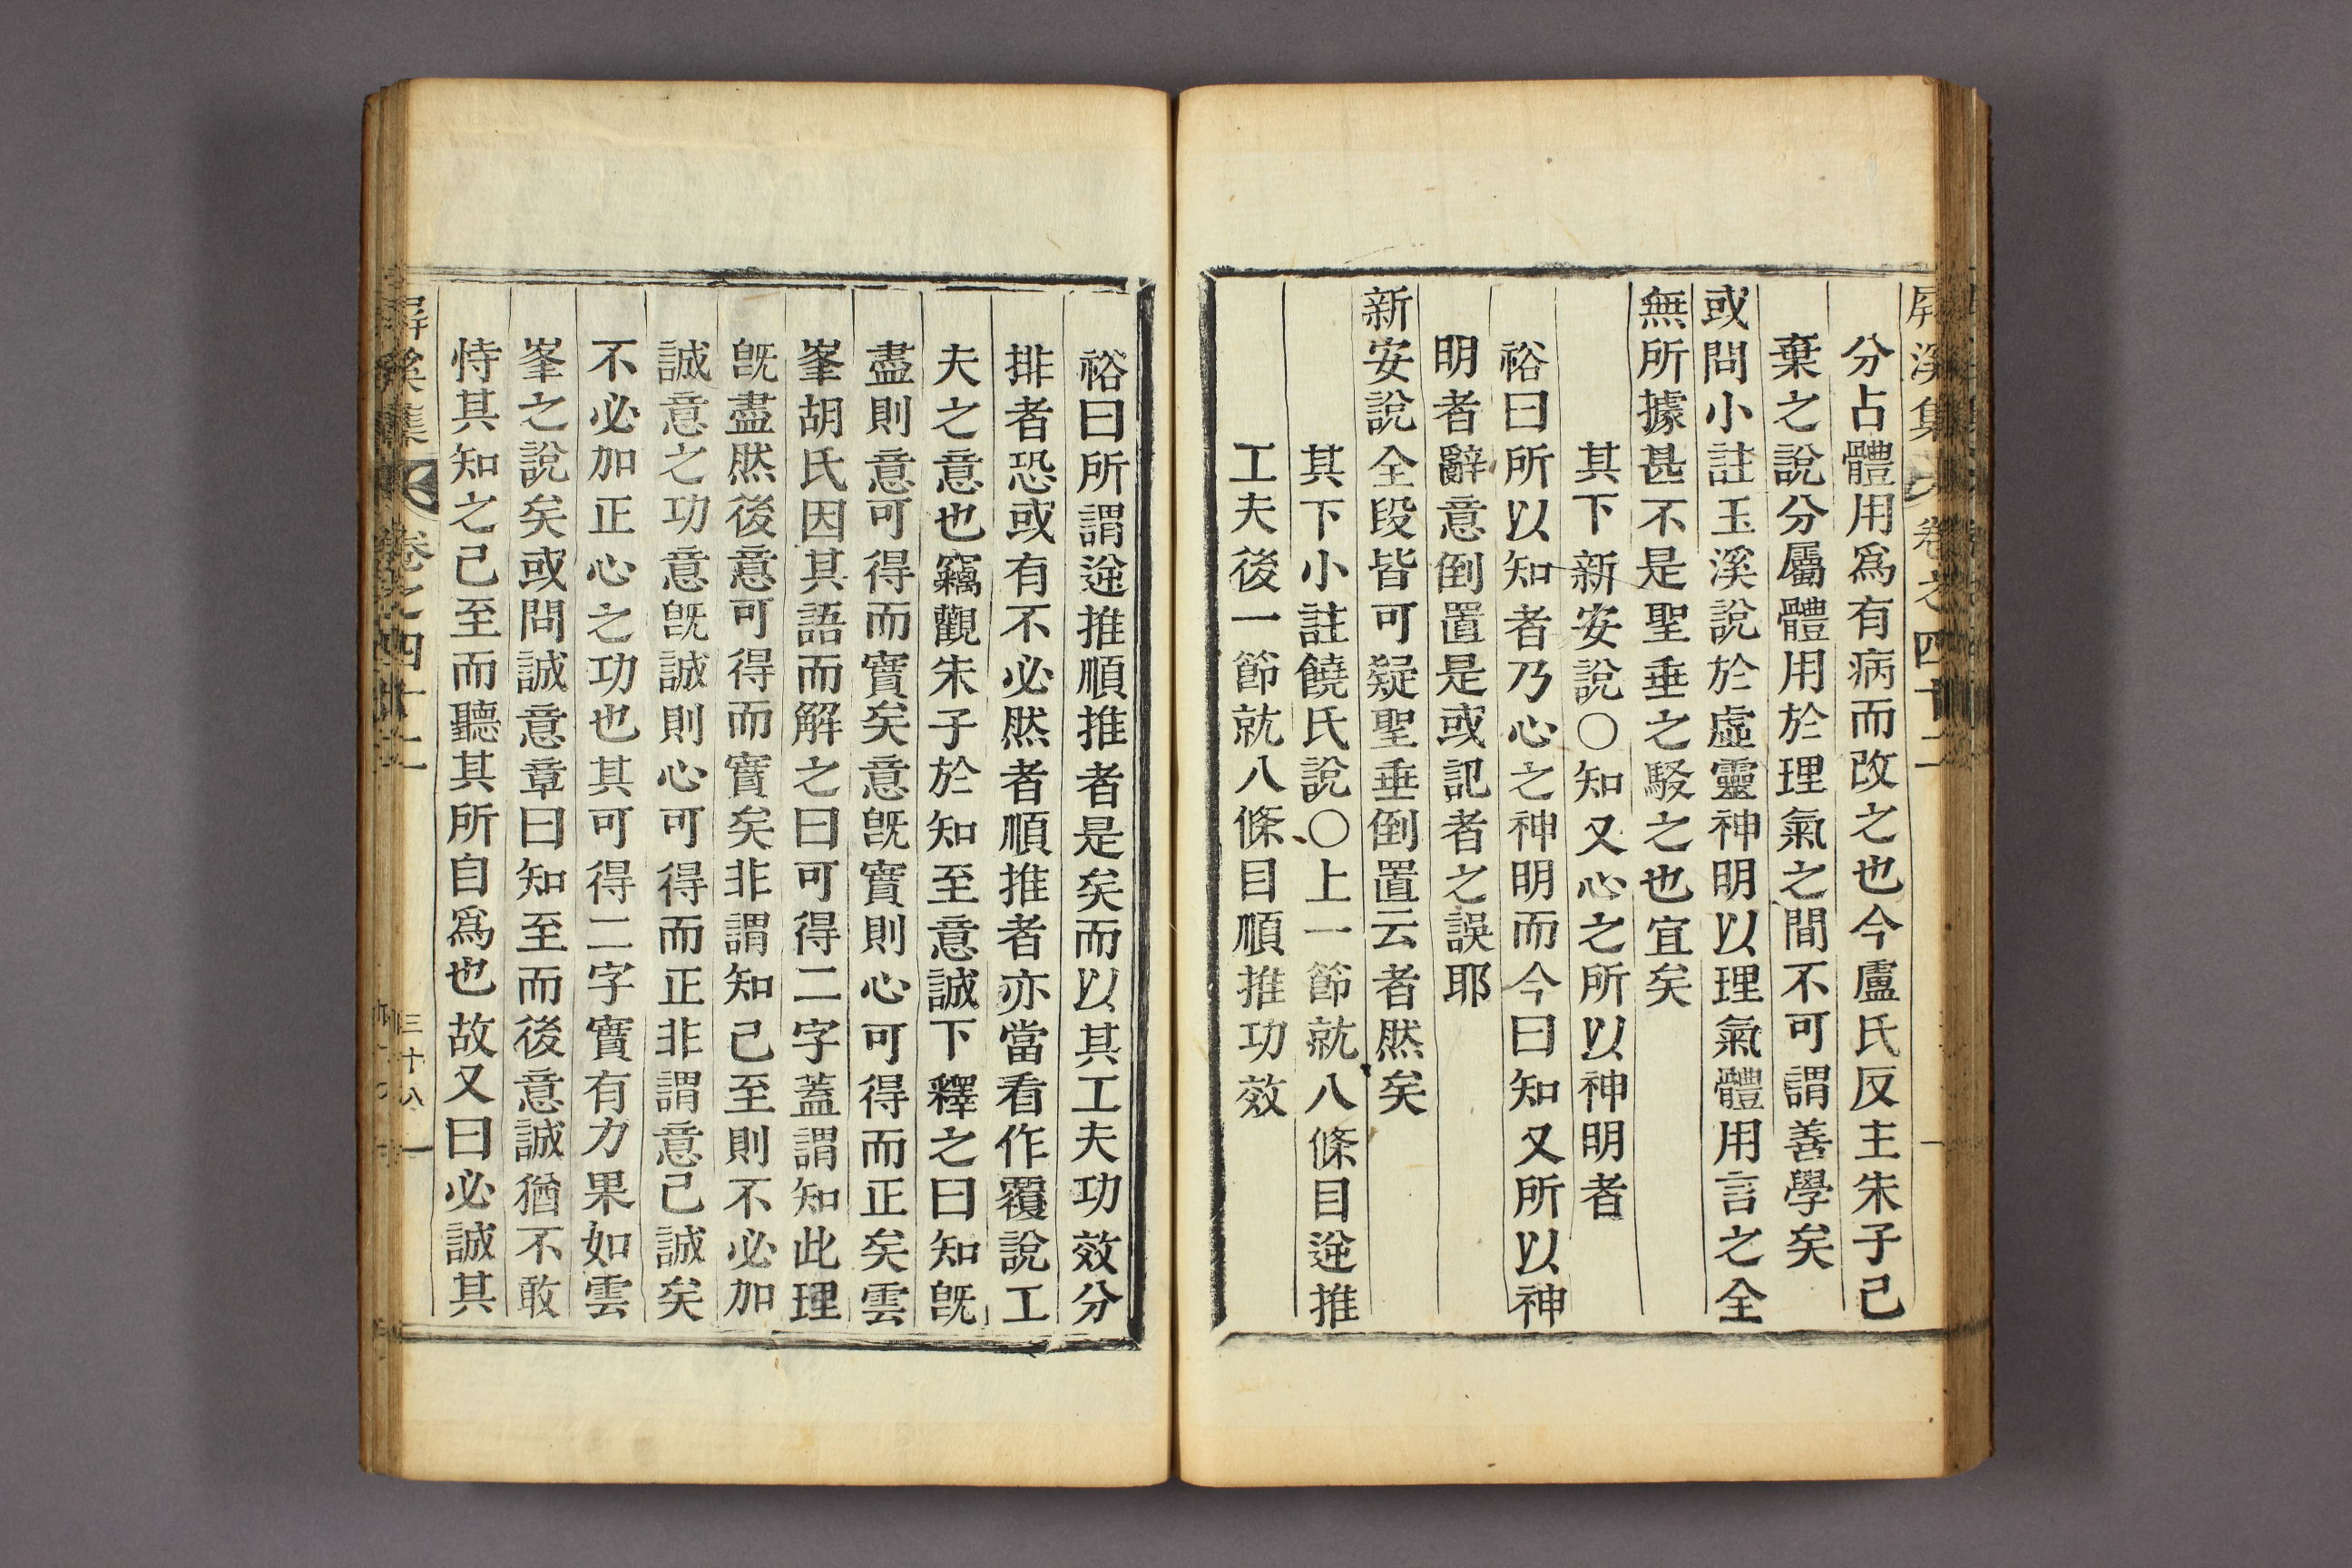 屛溪集 卷之四十二
分占體用爲有病而改之也今盧氏反主朱子已
棄之說分屬體用於理氣之間不可謂善學矣
或問小註玉溪說於虛靈神明以理氣體用言之全
無所據甚不是聖垂之駁之也宜矣
其下新安說○知又心之所以神明者
裕曰所以知者乃心之神明而今曰知又所以神
明者辭意倒置是或記者之誤耶
新安說全段皆可疑聖垂倒置云者然矣
其下小註饒氏說○上一節就八條目逆推
工夫後一節就八條目順推功效
裕曰所謂逆推順推者是矣而以其工夫功效分
排者恐或有不必然者順推者亦當看作覆說工
夫之意也竊觀朱子於知至意誠下釋之曰知旣
盡則意可得而實矣意旣實則心可得而正矣雲
峯胡氏因其語而解之曰可得二字蓋謂知此理
旣盡然後意可得而實矣非謂知已至則不必加
誠意之功意旣誠則心可得而正非謂意已誠矣
不必加正心之功也其可得二字實有力果如雲
峯之說矣或問誠意章曰知至而後意誠猶不敢
恃其知之已至而聽其所自爲也故又曰必誠其
屛溪集 卷之四十二
三十八